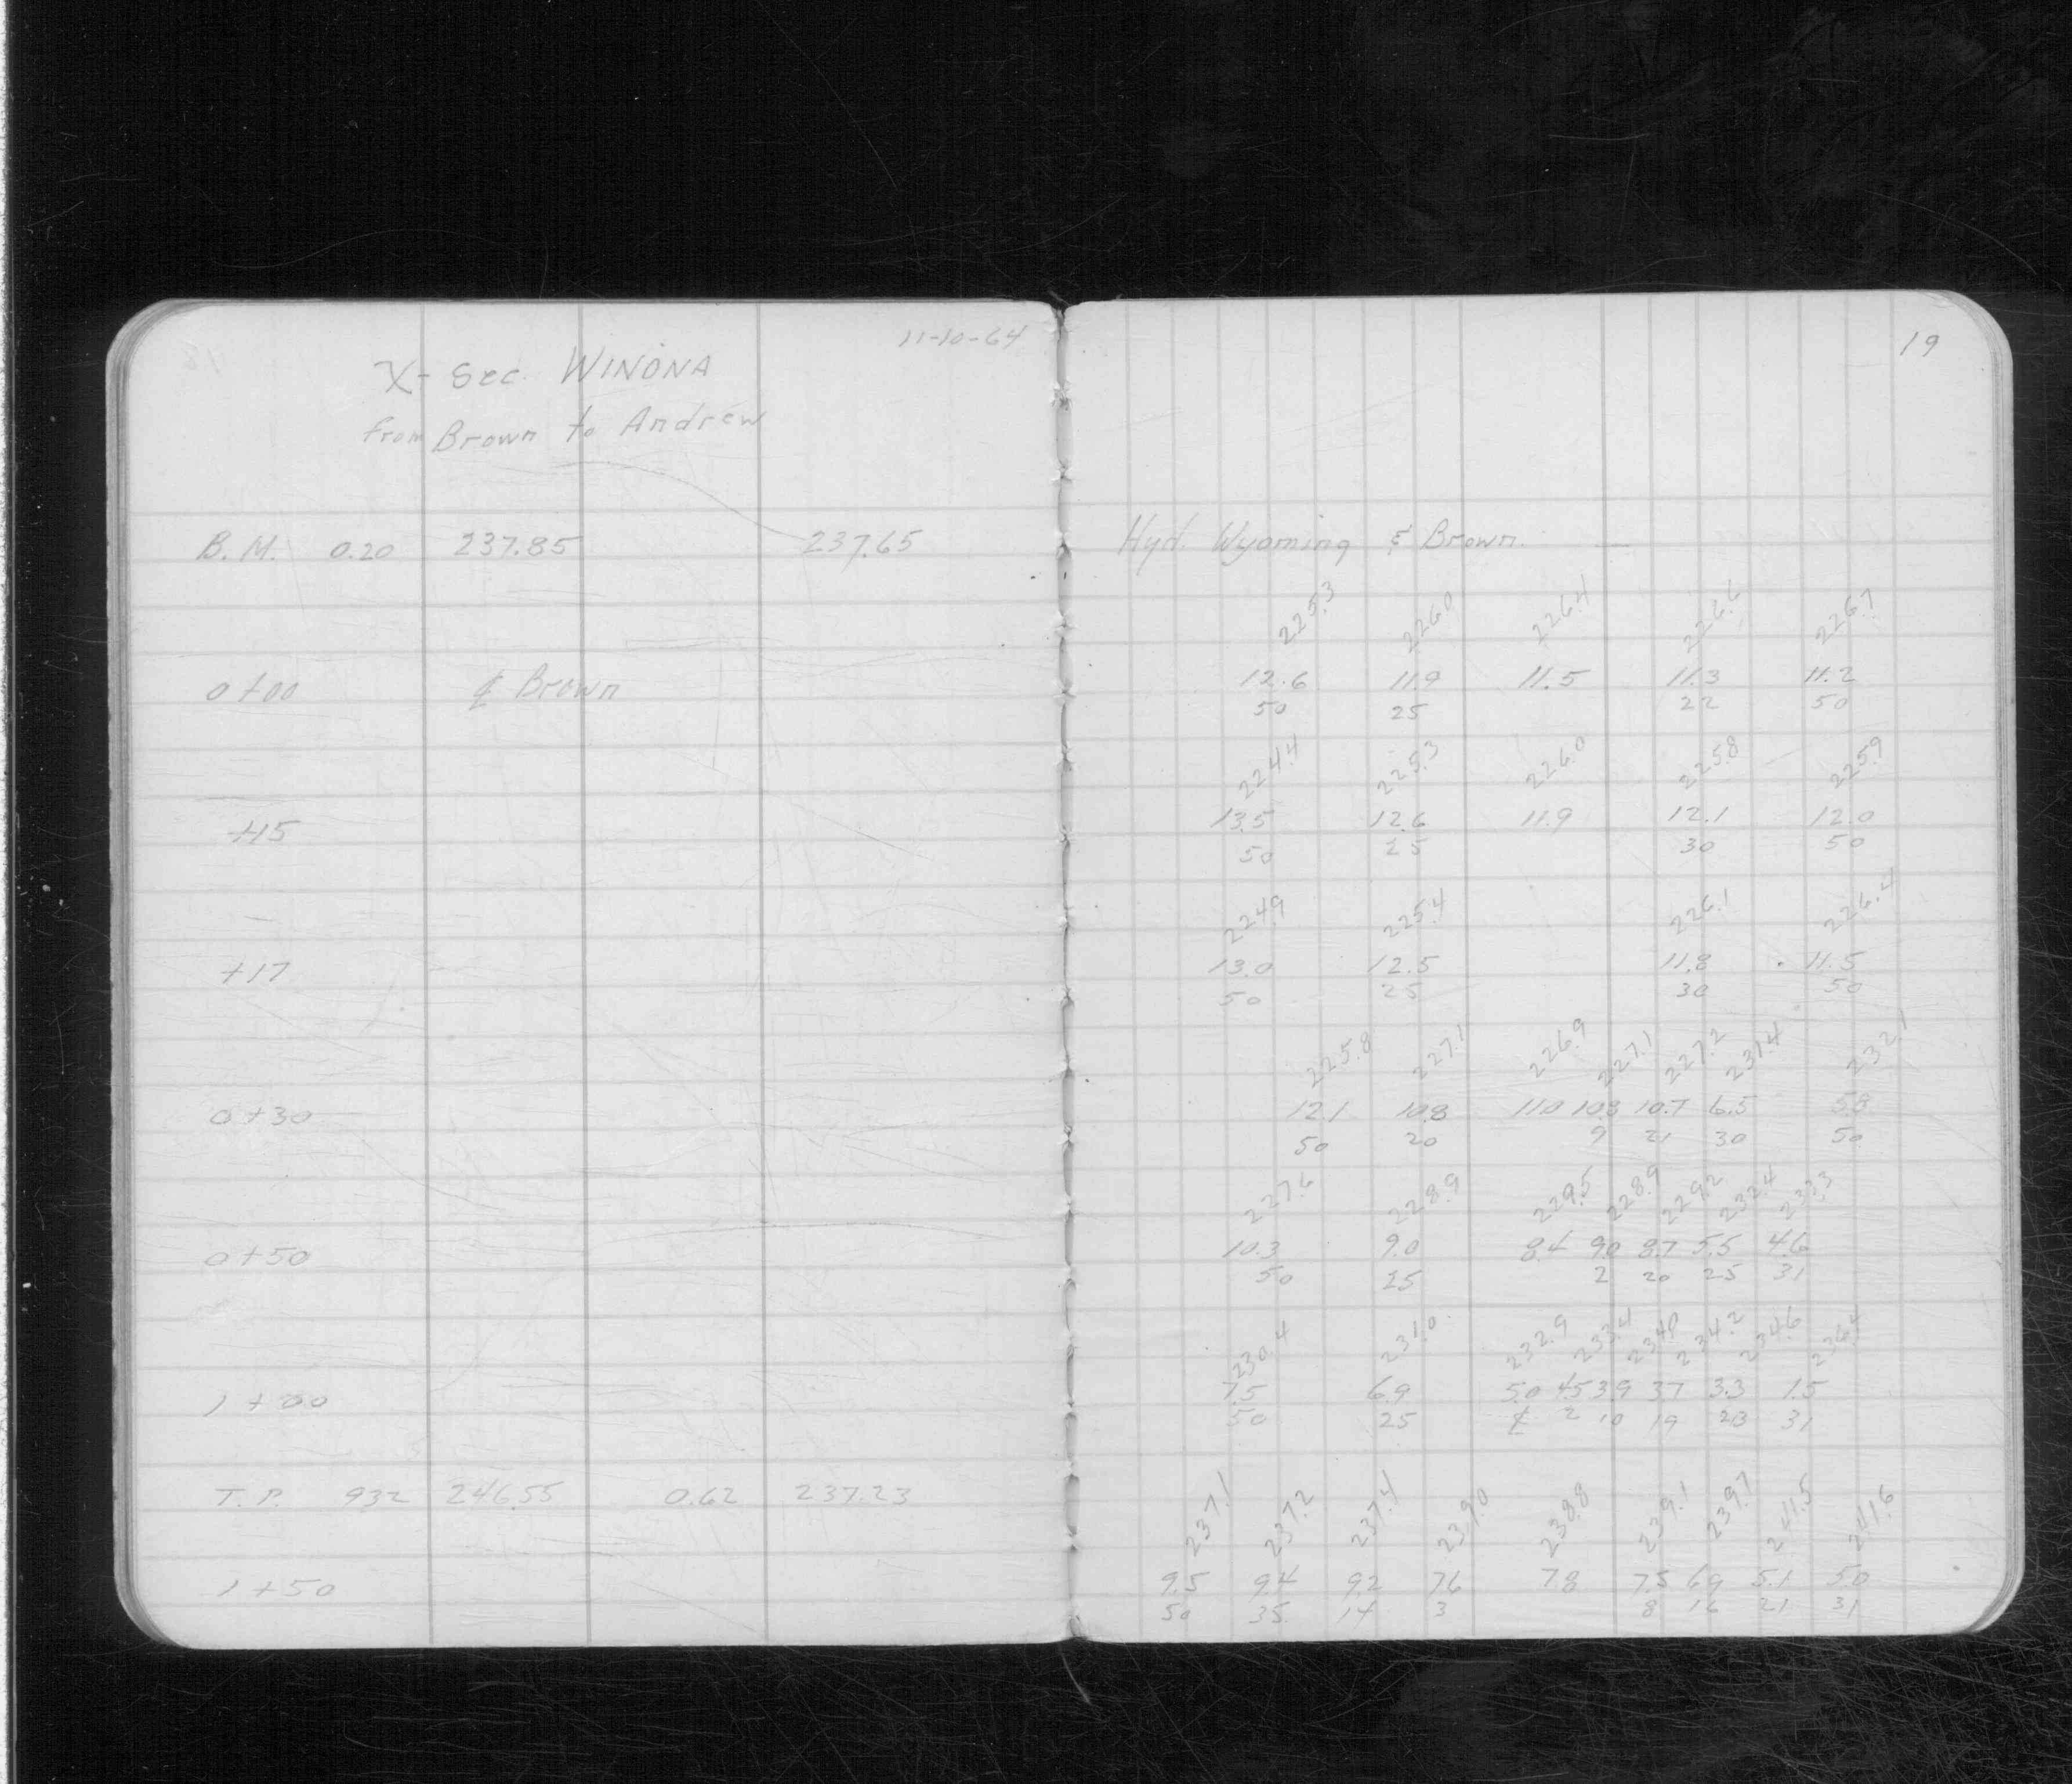 11-10-64
X-Sec. WINONA
from Brown to Andrew
B.M. 0.20 237.85 237.65
0+00 ℄ Brown
+15
+17
0+30
0+50
1+00
T.P. 932 246.55 0.62 237.23
1+50
19
Hyd. Wyoming & Brown.
225.3 226.0 226.4 226.6 226.7
12.6 11.9 11.5 11.3 11.2
50 25 22 50
224.4 225.3 226.0 225.8 225.9
13.5 12.6 11.9 12.1 12.0
50 25 30 50
224.9 225.4 226.1 226.4
13.0 12.5 11.8 11.5
50 25 30 50
225.8 227.1 226.9 227.1 227.2 231.4 232.1
12.1 10.8 11.0 10.8 10.7 6.5 5.8
50 20 9 21 30 50
227.6 228.9 229.5 228.9 229.2 232.4 233.3
10.3 9.0 8.4 9.0 8.7 5.5 4.6
50 25 2 20 25 31
230.4 231.0 232.9 233.4 234.0 234.2 234.6 236.4
7.5 6.9 5.0 4.5 3.9 3.7 3.3 1.5
50 25 ℄ 2 10 19 23 31
237.1 237.2 237.4 239.0 238.8 239.1 239.7 241.5 241.6
9.5 9.4 9.2 7.6 7.8 7.5 6.9 5.1 5.0
50 35 14 3 8 16 21 31